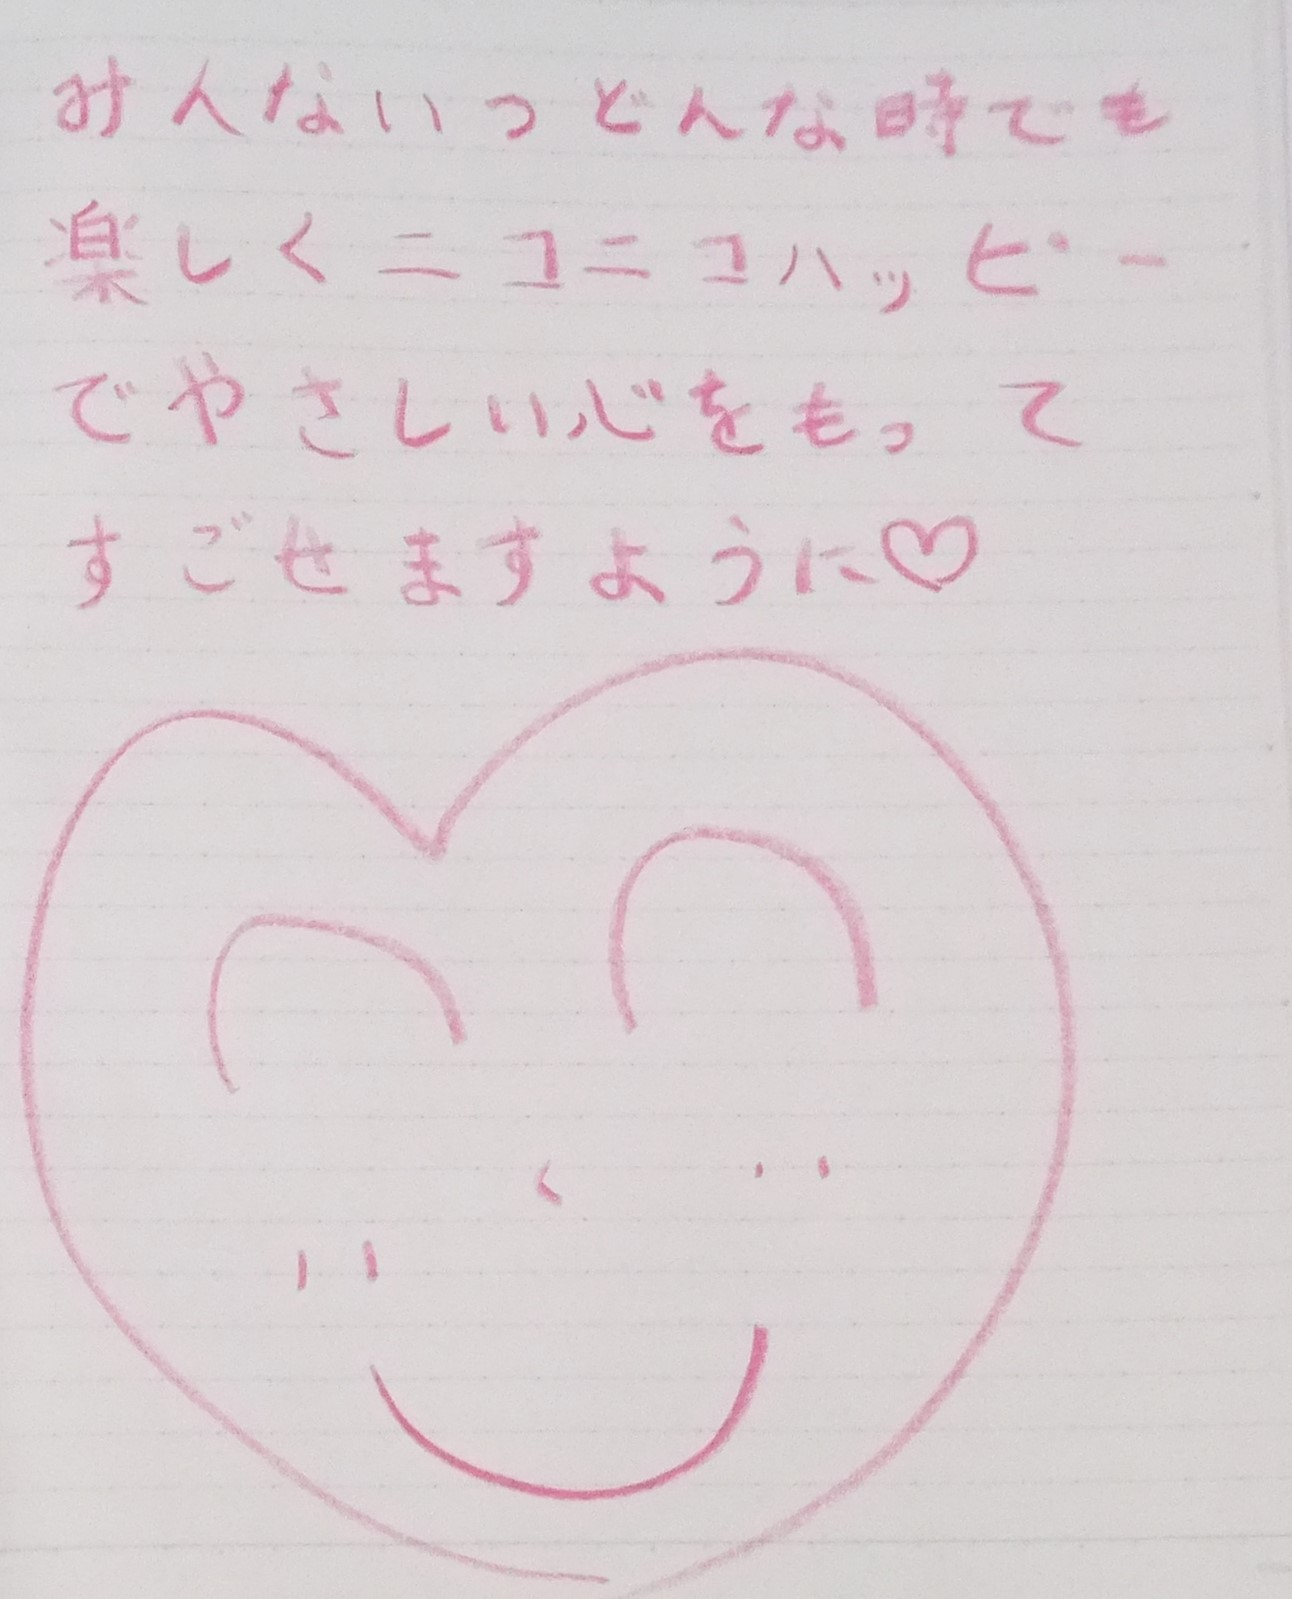 みんないつどんな時でも
楽しくニコニコハッピー
でやさしい心をもって
すごせますように♡